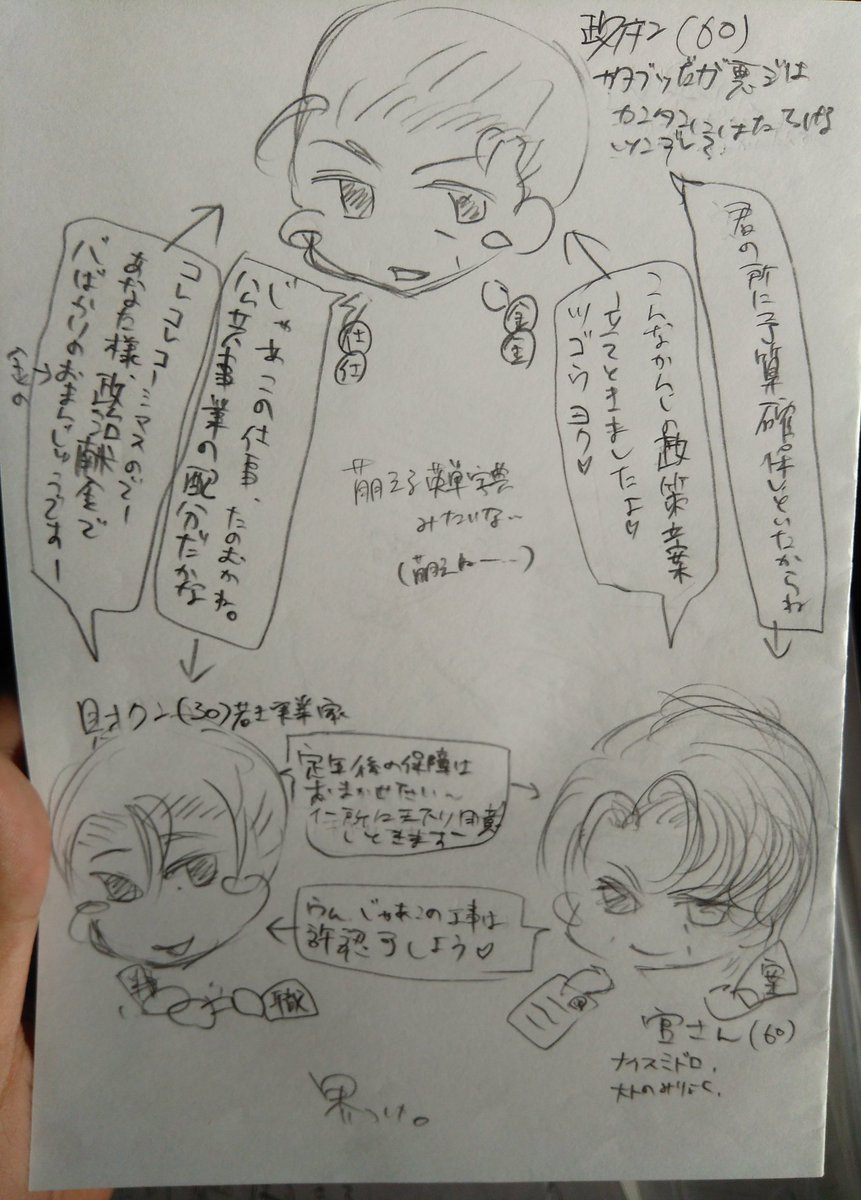 政府2(60)
カタブツだが悪ジは
カンタンにはたてげな
ツンデレ?
君の所に予算確保しといたからね
こんなかんじの政策立案
立てときましたよ♡
ツゴウヨク♡
金
主
仕
仕
じゃあこの仕事、たのむかね。
公共事業の配分だかな
コレコレコーシマスのでー
あなた様、政治献金で
バばかりのおまんじゅうですー
金の
萌える英単字典
みたいな…
(萌えねー…)
財クン(30)若き実業家
定年後の保障は
おまかせたい〜
仁所に天下り用意
しときますー
ウム じゃあこの工事は
許認可しよう♡
職
官さん(60)
ナイスミドロ、
大トのみりょく。
黒っけ。